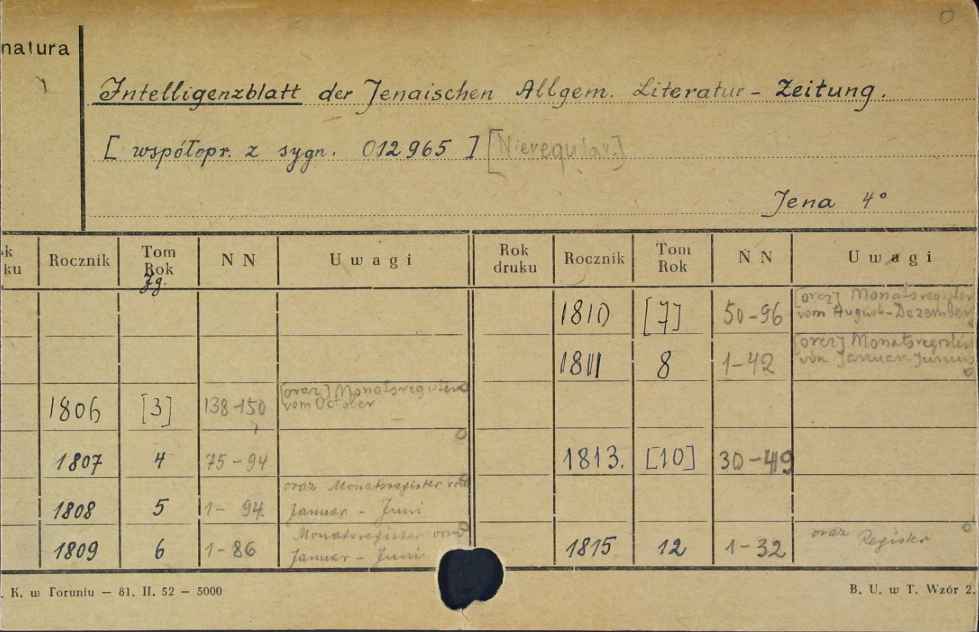 natura
Intelligenzblatt der Jenaischen Allgem. Literatur-Zeitung.
[ współopr. z sygn. 012965 ] [Nieregular.]
Jena 4°
ok ku Rocznik Tom Rok N N Uwagi Rok druku Rocznik Tom Rok N N Uwagi
Jg.
1810 [7] 50-96 [oraz] Monatsregister
vom August-Dezember
1811 8 1-42 [oraz] Monatsregister
von Januar-Juni
1806 [3] 138-150 [oraz] Monatsregister
vom October
1807 4 75-94 1813. [10] 30-49
1808 5 1-94 oraz Monatsregister von
Januar - Juni
1809 6 1-86 Monatsregister vom
Januar - Juni
1815 12 1-32 oraz Register
. K. w Toruniu — 81. II. 52 — 5000
B. U. w T. Wzór 2.